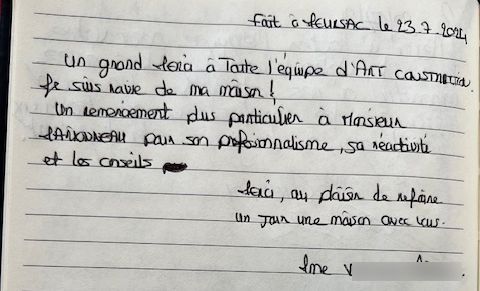 Fait à FLEURSAC le 23.7.2024
Un grand Merci à Toute l'équipe d'ART CONSTRUCTION.
Je suis ravie de ma maison !
Un remerciement plus particulier à Monsieur
pour son professionnalisme, sa réactivité
et les conseils
Merci, au plaisir de refaire
un jour une maison avec vous.
Mme V